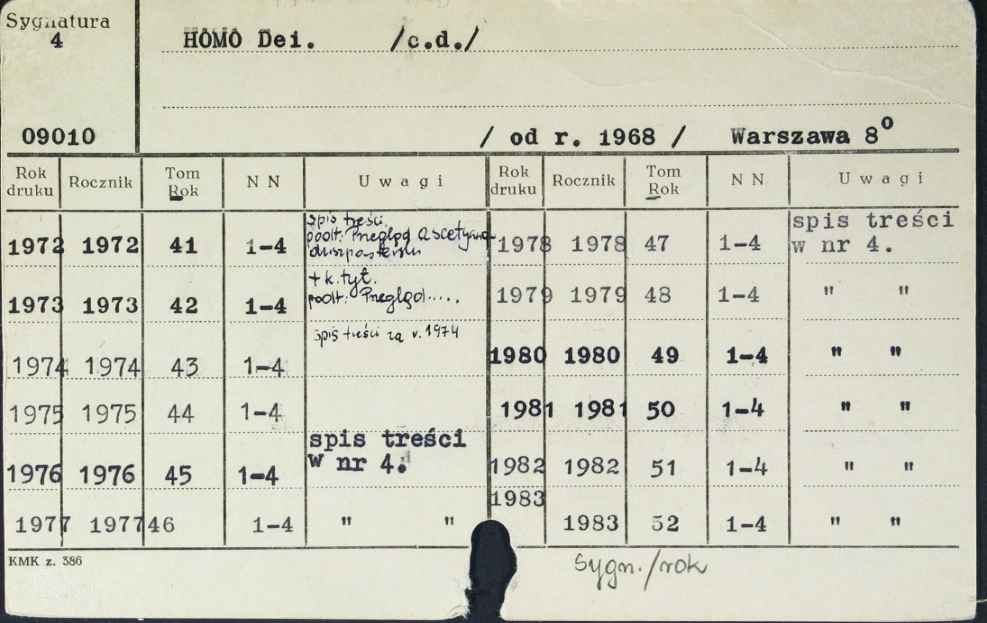 Sygnatura
4
HOMO Dei. /c.d./
09010
/ od r. 1968 / Warszawa 8°
Rok druku Rocznik Tom Rok N N U w a g i Rok druku Rocznik Tom Rok N N U w a g i
1972 1972 41 1-4 spis treści, podt: Przegląd ascetyczno- duszpasterski 1978 1978 47 1-4 spis treści w nr 4.
1973 1973 42 1-4 + k. tyt. podt: Przegląd..... 1979 1979 48 1-4 " "
1974 1974 43 1-4 spis treści za r. 1974 1980 1980 49 1-4 " "
1975 1975 44 1-4 1981 1981 50 1-4 " "
1976 1976 45 1-4 spis treści w nr 4. 1982 1982 51 1-4 " "
1977 1977 46 1-4 " " 1983 1983 52 1-4 " "
KMK z. 386
Sygn./rok